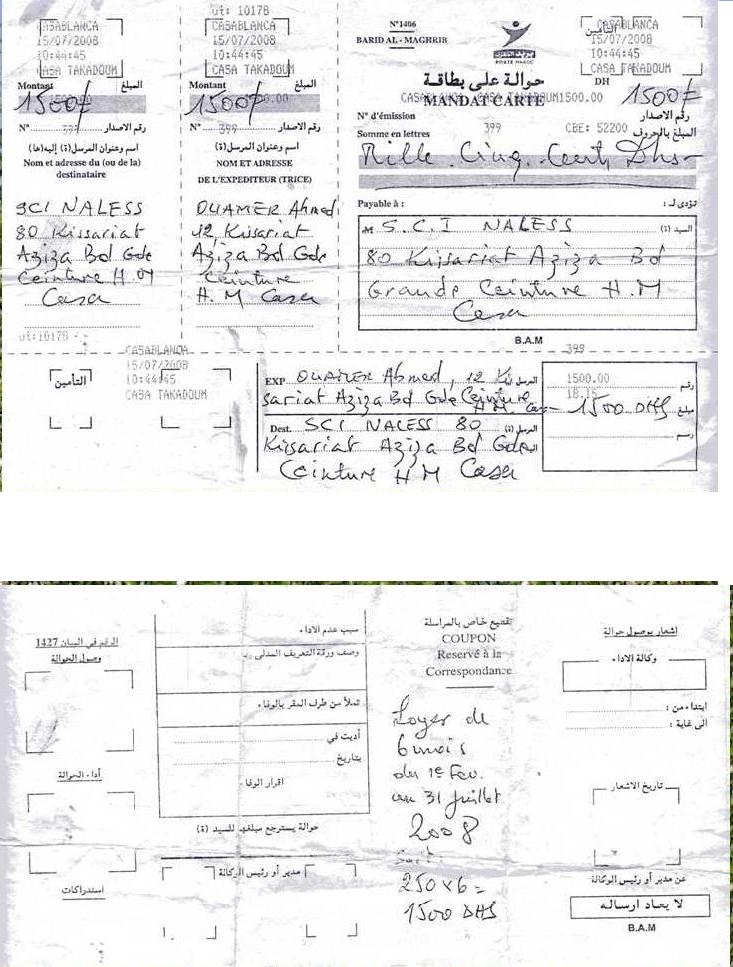 ut: 10178
CASABLANCA
15/07/2008
10:44:45
CASA TAKADOUM
Montant المبلغ
1500F
N° 399 رقم الاصدار
اسم وعنوان المرسل (ة) إليه (ها)
Nom et adresse du (ou de la)
destinataire
SCI NALESS
80 Kissariat
Aziza Bd Gde
Ceinture H. M
Casa
ut:10178
CASABLANCA
15/07/2008
10:44:45
CASA TAKADOUM
Montant المبلغ
1500F
N° 399 رقم الاصدار
اسم وعنوان المرسل (ة)
NOM ET ADRESSE
DE L'EXPEDITEUR (TRICE)
OUAMER Ahmed
12, Kissariat
Aziza Bd Gde
Ceinture
H. M Casa
N°1406
BARID AL - MAGHRIB
بريد المغرب
POSTE MAROC
التأمين
CASABLANCA
15/07/2008
10:44:45
CASA TAKADOUM
حوالة على بطاقة
MANDAT CARTE
DH 1500F
N° d'émission 399 CBE: 52200 رقم الاصدار
Somme en lettres المبلغ بالحروف
Mille Cinq Cent Dhs
Payable à : تؤدى لـ :
M S.C.I NALESS السيد (ة)
80 Kissariat Aziza Bd
Grande Ceinture H.M
Casa
B.A.M
399
التأمين
CASABLANCA
15/07/2008
10:44:45
CASA TAKADOUM
EXP OUAMER Ahmed, 12 Kis المرسل
sariat Aziza Bd Gde Ceinture
H. M. Casa
Dest. SCI NALESS 80 المرسل (ة)
Kissariat Aziza Bd Gde
Ceinture H M Casa
1500.00 رقم
18.15
1500 DHS مبلغ
رسم
الرقم في البيان 1427
وصول الحوالة
أداء الحوالة
استدراكات
سبب عدم الاداء
وصف ورقة التعريف المدلى
تملأ من طرف المقر بالوفاء
أديت في
بتاريخ
اقرار الوفاء
حوالة يسترجع مبلغها للسيد (ة)
مدير أو رئيس الوكالة
تقطيع خاص بالمراسلة
COUPON
Reservé à la
Correspondance
Loyer de
6 mois
du 1e Fev.
au 31 juillet
2008
Soit:
250x6=
1500 DHS
اشعار بوصول حوالة
وكالة الاداء
ابتداء من :
الى غاية :
تاريخ الاشعار
عن مدير أو رئيس الوكالة
لا يعاد ارساله
B.A.M